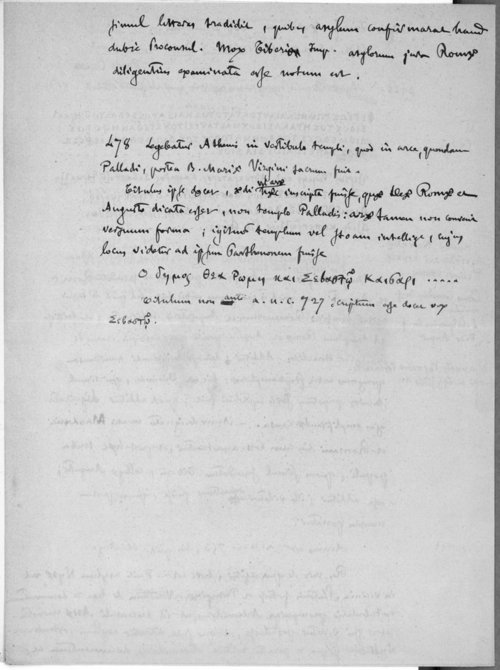 simul litteras tradidit, quibus asylum confirmarat haud
dubie Proconsul. Mox Tiberio Imp. asylorum jura Romæ
diligentius examinata esse notum est.
478 Legebatur Athenis in vestibulo templi, quod in arce, quondam
Palladi, postea B. Mariæ Virgini sacrum fuit.
Titulus ipse docet, ædi inscripta fuisse, quæ Deæ Romæ et
Augusto dicata esset, non templo Palladis: aræ tamen non convenit
versuum forma; igitur templum vel stoam intellige, cujus
locus videtur ad ipsum Parthenonem fuisse
Ο δημος θεα Ρωμη και Σεβαστῳ Καισαρι .....
titulum non ante a. u. c. 727 scriptum esse docet vox
Σεβαστῳ.